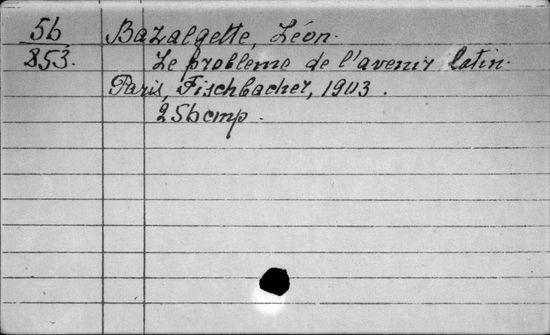 56 Bazalgette, Léon.
853. Le problème de l'avenir latin.
Paris, Fischbacher, 1903.
256 cmp.